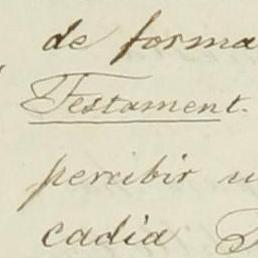 de forma
Testament.
percibir u
cadia